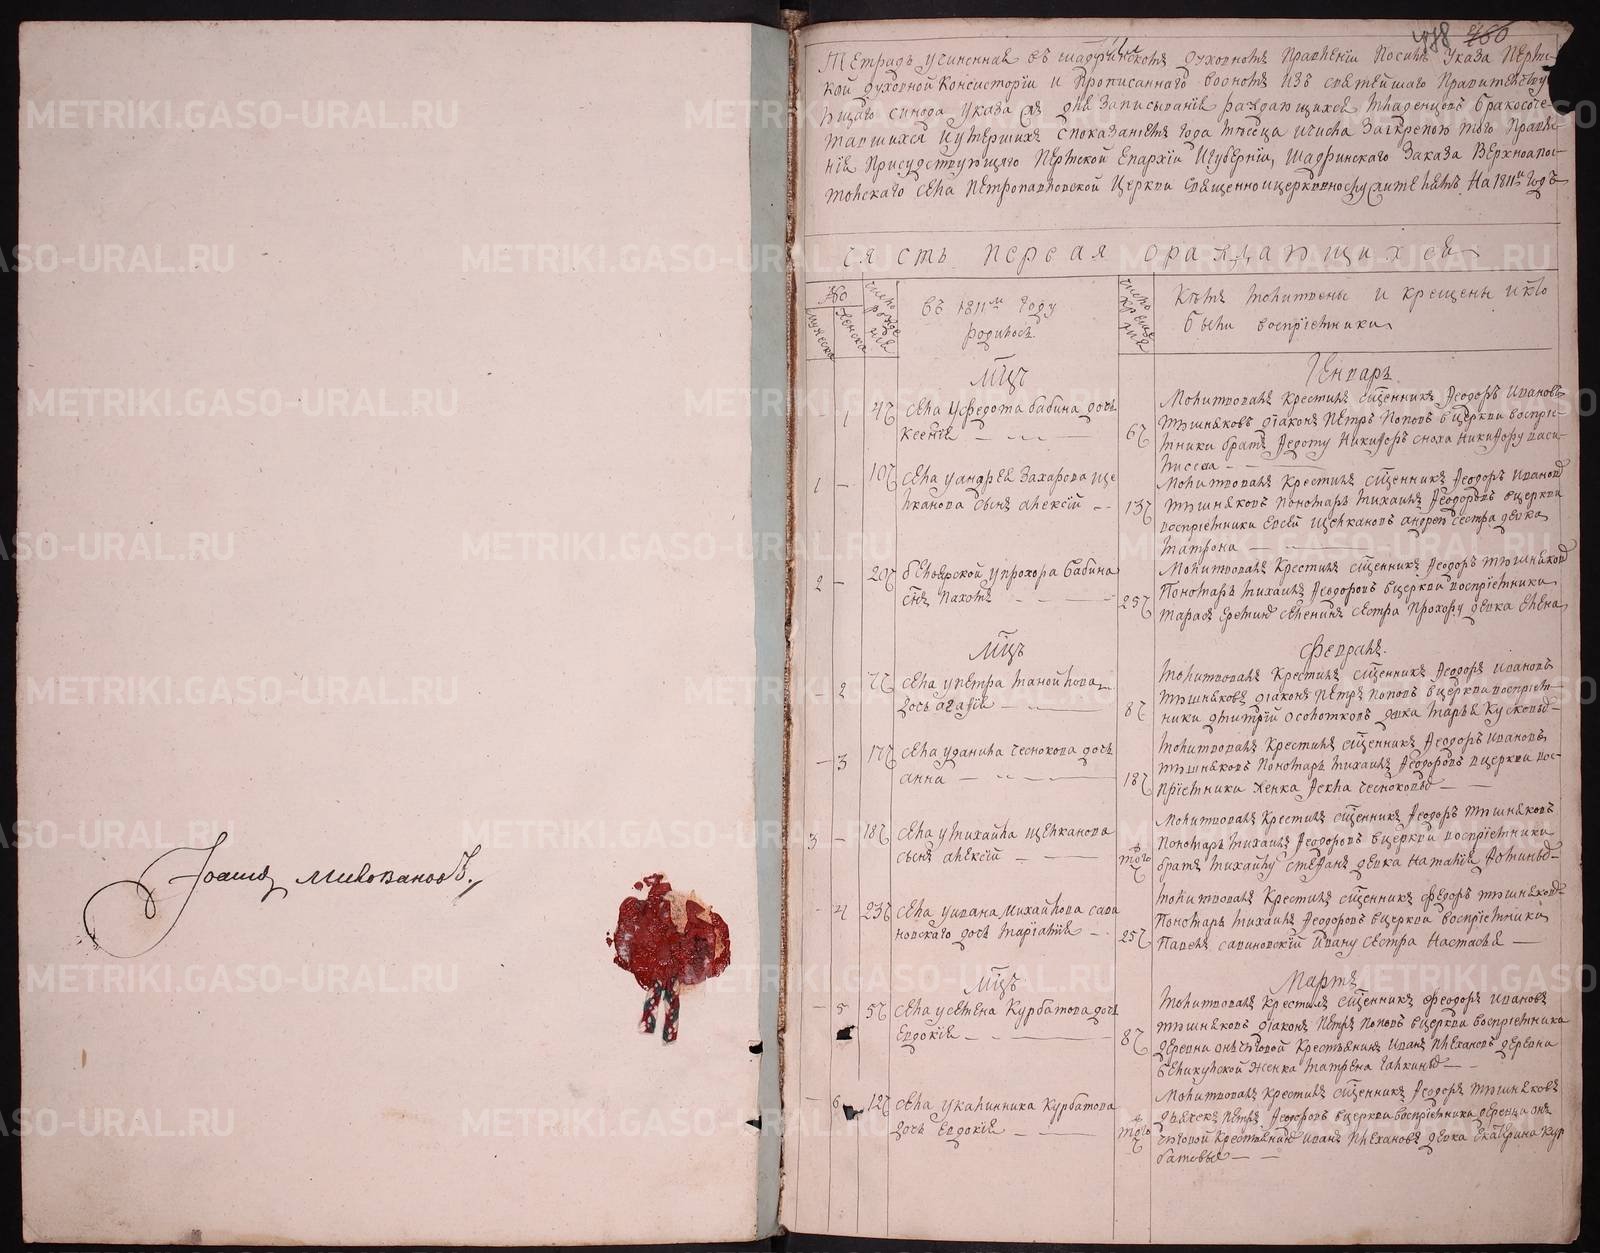 478 460
Тетрадь учиненная въ шадринскомъ духовномъ Правленіи Посилѣ Указа Перм-
ской духовной Консисторіи и Прописаннаго вономъ изъ святейшаго Правителству
ющаго синода указа для
тавшихся и умершихъ спеказаніемъ года месяца и числа За скрепою того Правле-
нія Присудствующаго Пермской Епархіи и губерніи, Шадринскаго Заказа Верхнояпо-
лонскаго села Петропавловской Церкви Священноицерковнослужителямъ На 1811й Годъ
часть первая ораждающихся
Число рожденія
въ 1811м Году
родилось
Число крещенія
Кѣмъ молитвены и крещены и кто
были воспріемники
мужеска
женска
Мцъ
Генваръ
1 4
села Уфедота бабина дочь
Ксенія
6
Молитвовалъ Крестилъ сщенникъ Феодоръ Ивановъ
Мѣшняковъ діаконъ Петръ Поповъ вцеркви воспріе-
мники братъ Федоту Никифоръ сноха Никифору васи-
лисса
1 – 10
села Уандрея Захарова ще
лканова сынъ алексій
13
Молитвовалъ Крестилъ сщенникъ Феодоръ Ивановъ
Мѣшняковъ Пономаръ михаилъ Феодоровъ вцеркви
воспріемники Евсей щелкановъ андрею сестра девка
матрона
2 – 20
белоярской упрохора бабина
снъ Пахомъ
25
Молитвовалъ Крестилъ сщенникъ Феодоръ мѣшняковъ
Пономаръ михаилъ Феодоровъ вцеркви воспріемники
сестра Прохору девка елена
Мцъ
Февраль
– 2 7
села упетра
дочь агафія
8
молитвовалъ Крестилъ сщенникъ Феодоръ ивановъ
мѣшняковъ діаконъ Петръ Поповъ вцеркви воспріем-
ники дмитрій осоломковъ девка марья Кускова
– 3 17
села уданила чеснокова дочь
анна
18
молитвовалъ Крестилъ сщенникъ Феодоръ ивановъ
мѣшняковъ Пономаръ михаилъ Феодоровъ вцеркви вос-
пріемники женка Фекла чеснокова
3 – 18
села умихаила щелканова
сынъ алексій
того
Молитвовалъ Крестилъ сщенникъ Феодоръ мѣшняковъ
Пономаръ михаилъ Феодоровъ вцеркви воспріемники
братъ михаилу стефанъ девка наталія
– 4 23
села уивана михайлова сави
новскаго дочь маріамія
25
молитвовалъ Крестилъ сщенникъ федоръ мѣшняковъ
Пономаръ михаилъ Феодоровъ вцеркви воспріемники
Павелъ савиновскій ивану сестра настасья
Мцъ
Мартъ
– 5 5
села усемена Курбатова дочь
Евдокія
8
молитвовалъ Крестилъ сщенникъ феодоръ ивановъ
мѣшняковъ діаконъ Петръ Поповъ вцеркви воспріемника
деревни Крестьянинъ иванъ Плехановъ деревни
женка матрена галкина
– 6 12
села укалинника Курбатова
дочь Евдокія
того
молитвовалъ Крестилъ сщенникъ Феодоръ мѣшняковъ
дьячекъ Петръ Феодоровъ вцеркви воспріемника деревни
Крестьянинъ иванъ Плехановъ девка екатерина кур
батовы
Іоаннъ Миловановъ.
METRIKI.GASO-URAL.RU